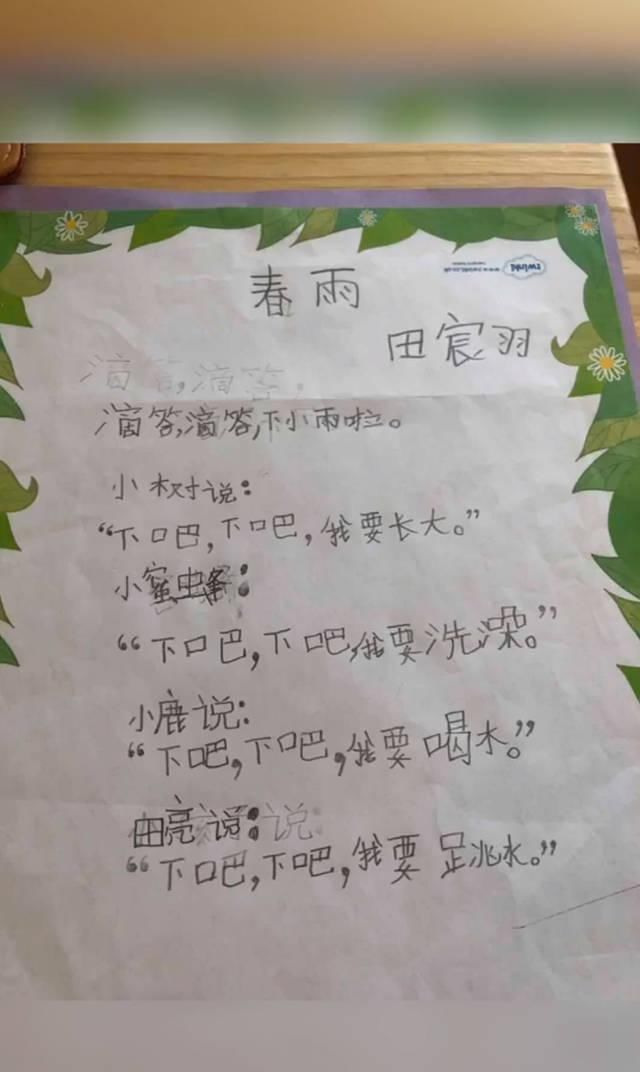 春雨
田宸羽
滴答,滴答,
滴答,滴答,下小雨啦。
小树说:
“下吧,下吧,我要长大。”
小蜜
“下吧,下吧,我要洗澡。”
小鹿说:
“下吧,下吧,我要喝水。”
田亮说:说:
“下吧,下吧,我要跳水。”
twinkl
www.twinkl.co.uk